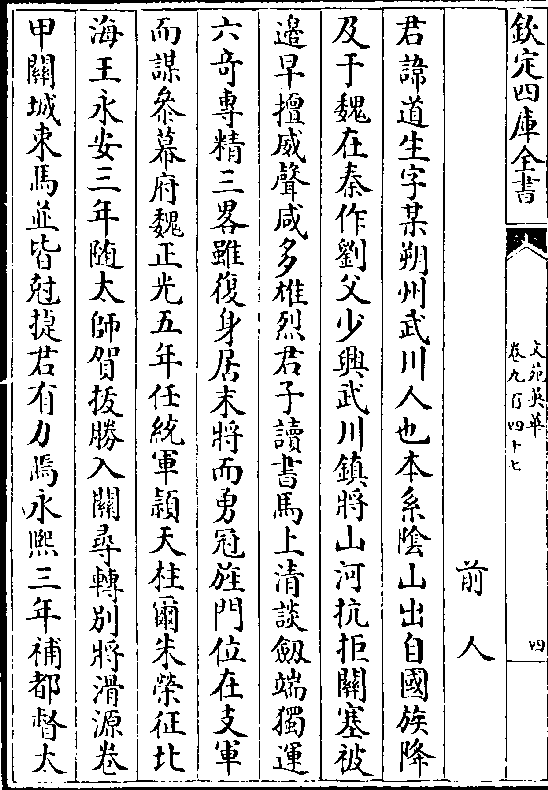 欽定四庫全書
文苑英華
卷九百四十七
四
前人
君諱道生字某朔州武川人也本系陰山出自國族降
及于魏在秦作劉父少興武川鎮將山河抗拒關塞被
邉早擅威聲咸多雄烈君子讀書馬上清談劔端獨運
六竒專精三畧雖復身居末將而勇冠旌門位在支軍
而謀參幕府魏正光五年任統軍頴天柱爾朱榮征北
海王永安三年随太師賀拔勝入關尋轉别將滑源卷
甲關城束馬並皆尅㨗君有力焉永熙三年補都督大